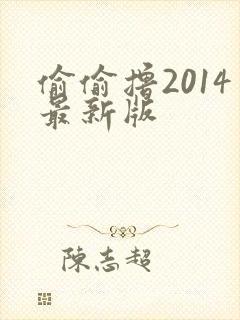 偷偷撸2014
最新版
陈志超